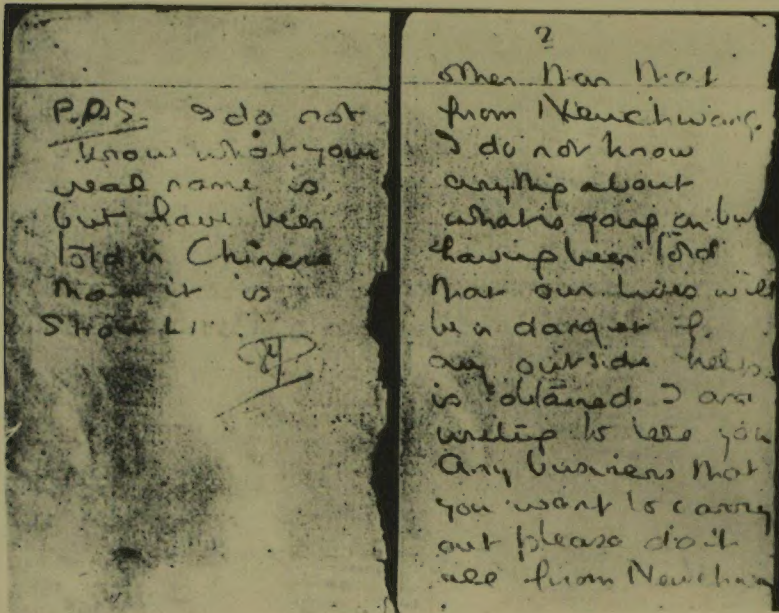 P.P.S. I do not
know what your
real name is,
but have been
told in Chinese
that it is
2
other than that
from Newchwang.
I do not know
anything about
what is going on but
having been told
that our lives will
be in danger if
any outside help
is obtained. I am
writing to tell you
Any business that
you want to carry
out please do it
all from Newchwan